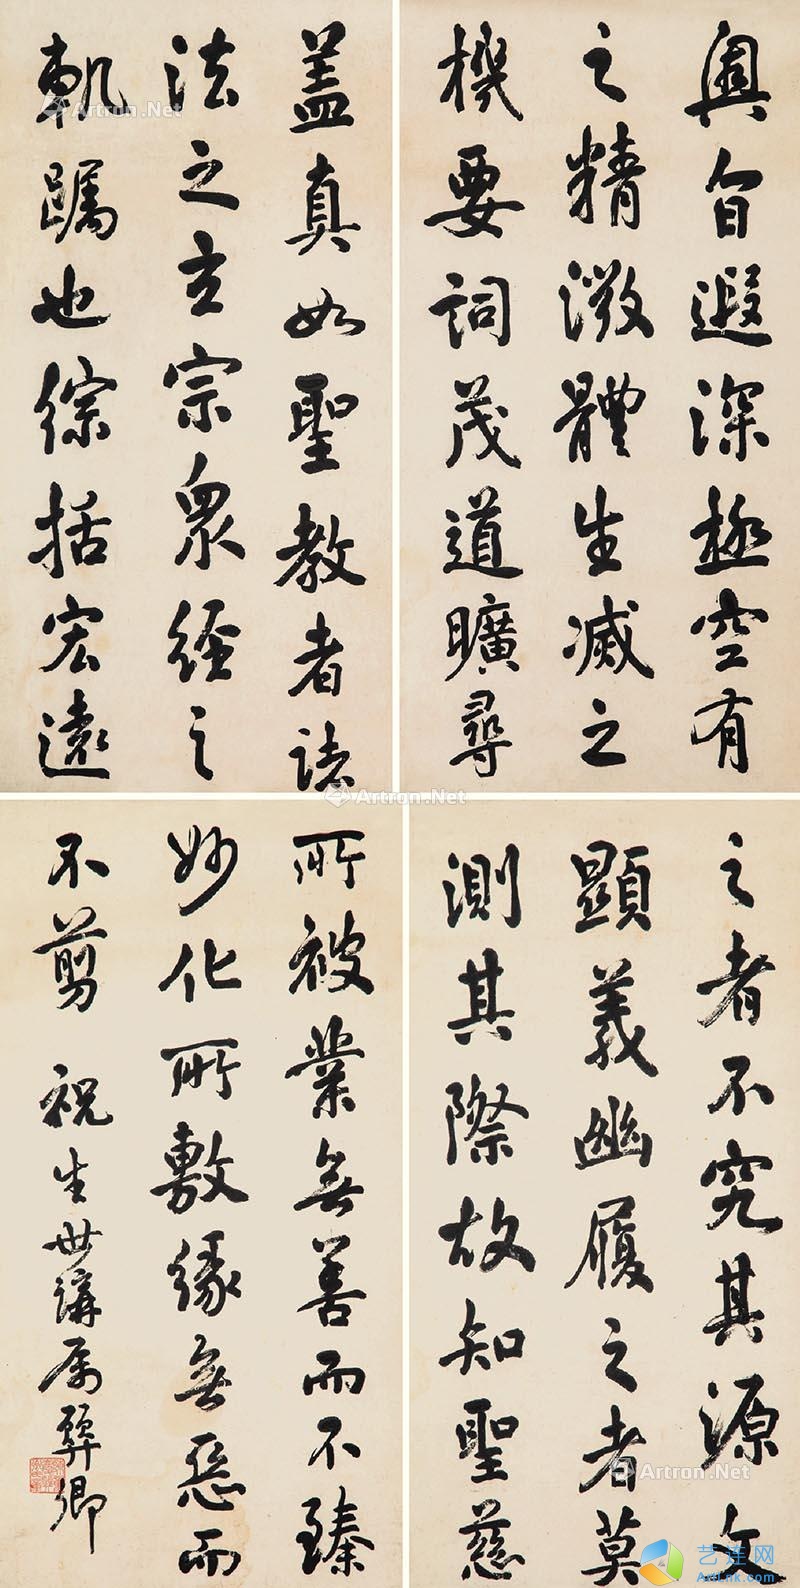 盖真如聖教者諸
法之玄宗衆經之
軌躅也綜括宏遠
奧旨遐深極空有
之精微體生滅之
機要詞茂道曠尋
之者不究其源文
顯義幽履之者莫
測其際故知聖慈
所被業無善而不臻
妙化所敷緣無惡而
不剪 祝生世講屬 卿
Artron.Net
Artron.Net
Artron.Net
Artron.Net
Artron.Net
艺连网
ArtLink.com